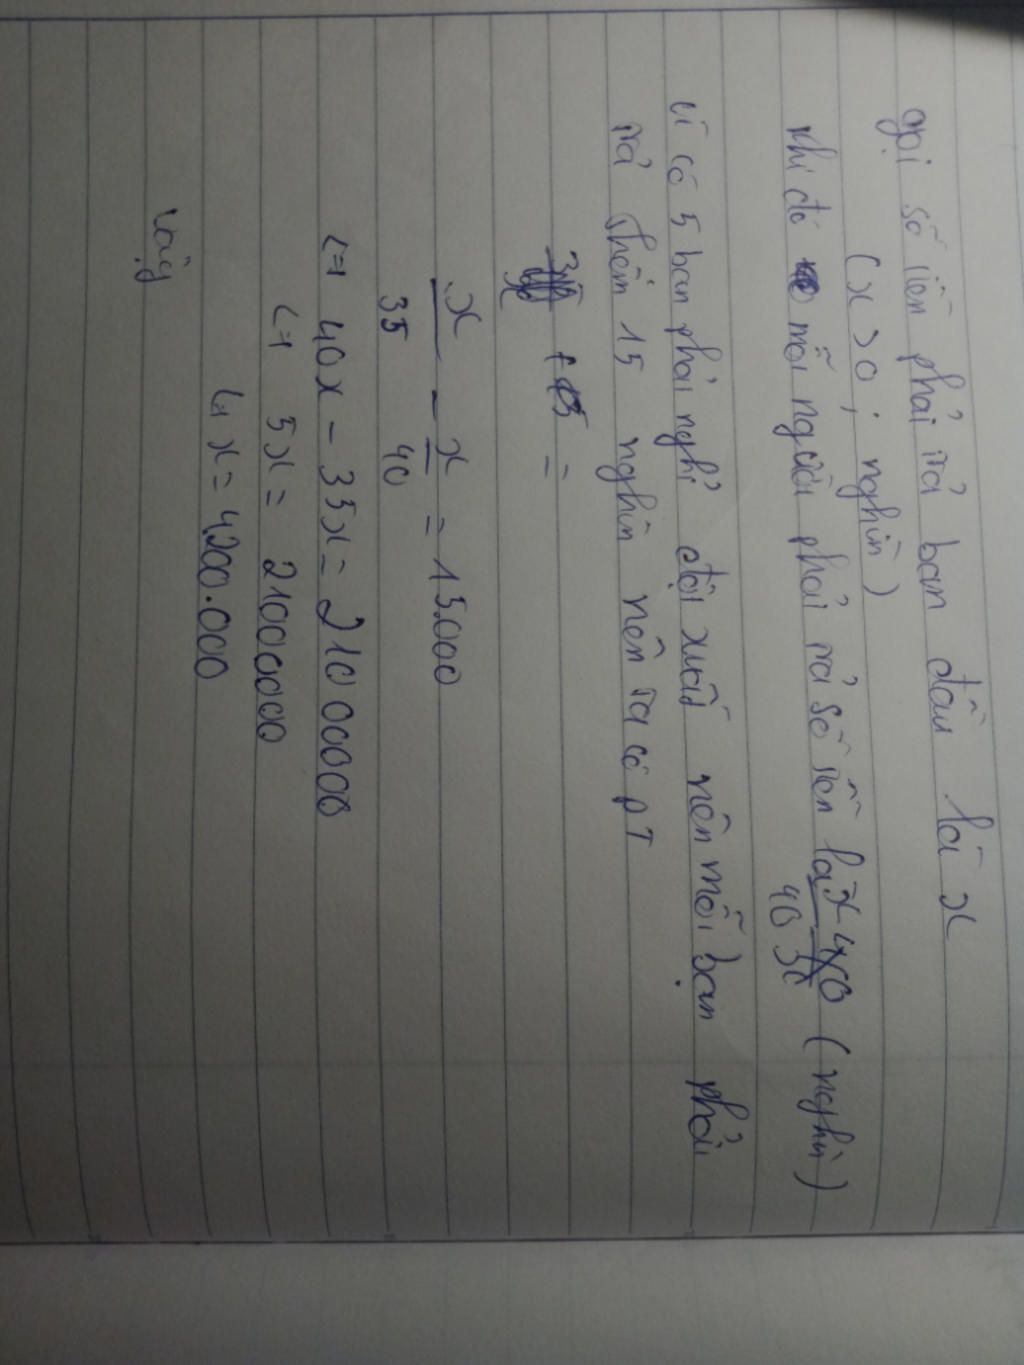 gọi số tiền phải trả ban đầu là x
(x > 0 ; nghìn)
khi đó mỗi người phải trả số tiền là x/40 (nghìn)
vì có 5 bạn phải nghỉ đột xuất nên mỗi bạn phải
trả thêm 15 nghìn nên ta có pT
+ 15 =
x/35 - x/40 = 15.000
<=> 40x - 35x = 21000000
<=> 5x = 21000000
<=> x = 4.200.000
vậy